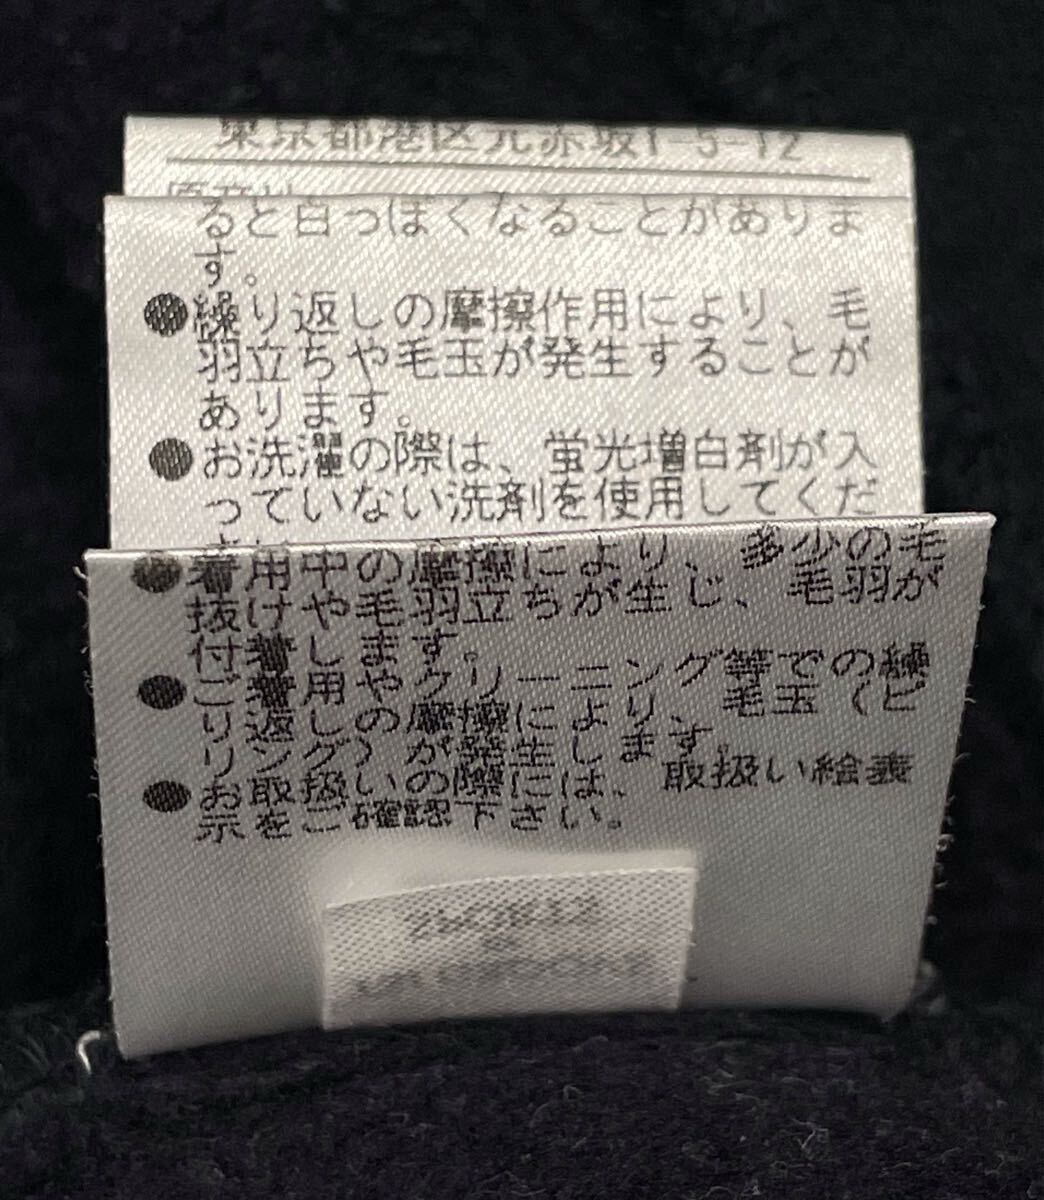 東京都港区元赤坂1-5-12
ると白っぽくなることがありま
す。
●繰り返しの摩擦作用により、毛
羽立ちや毛玉が発生することが
あります。
●お洗濯の際は、蛍光増白剤が入
っていない洗剤を使用してくだ
●着用中の摩擦により、多少の毛
抜けや毛羽立ちが生じ、毛羽が
付着します。
●ご着用やクリーニング等での繰
り返しの摩擦により、毛玉(ピ
リング)が発生します。
●お取扱いの際には、取扱い絵表
示をご確認下さい。